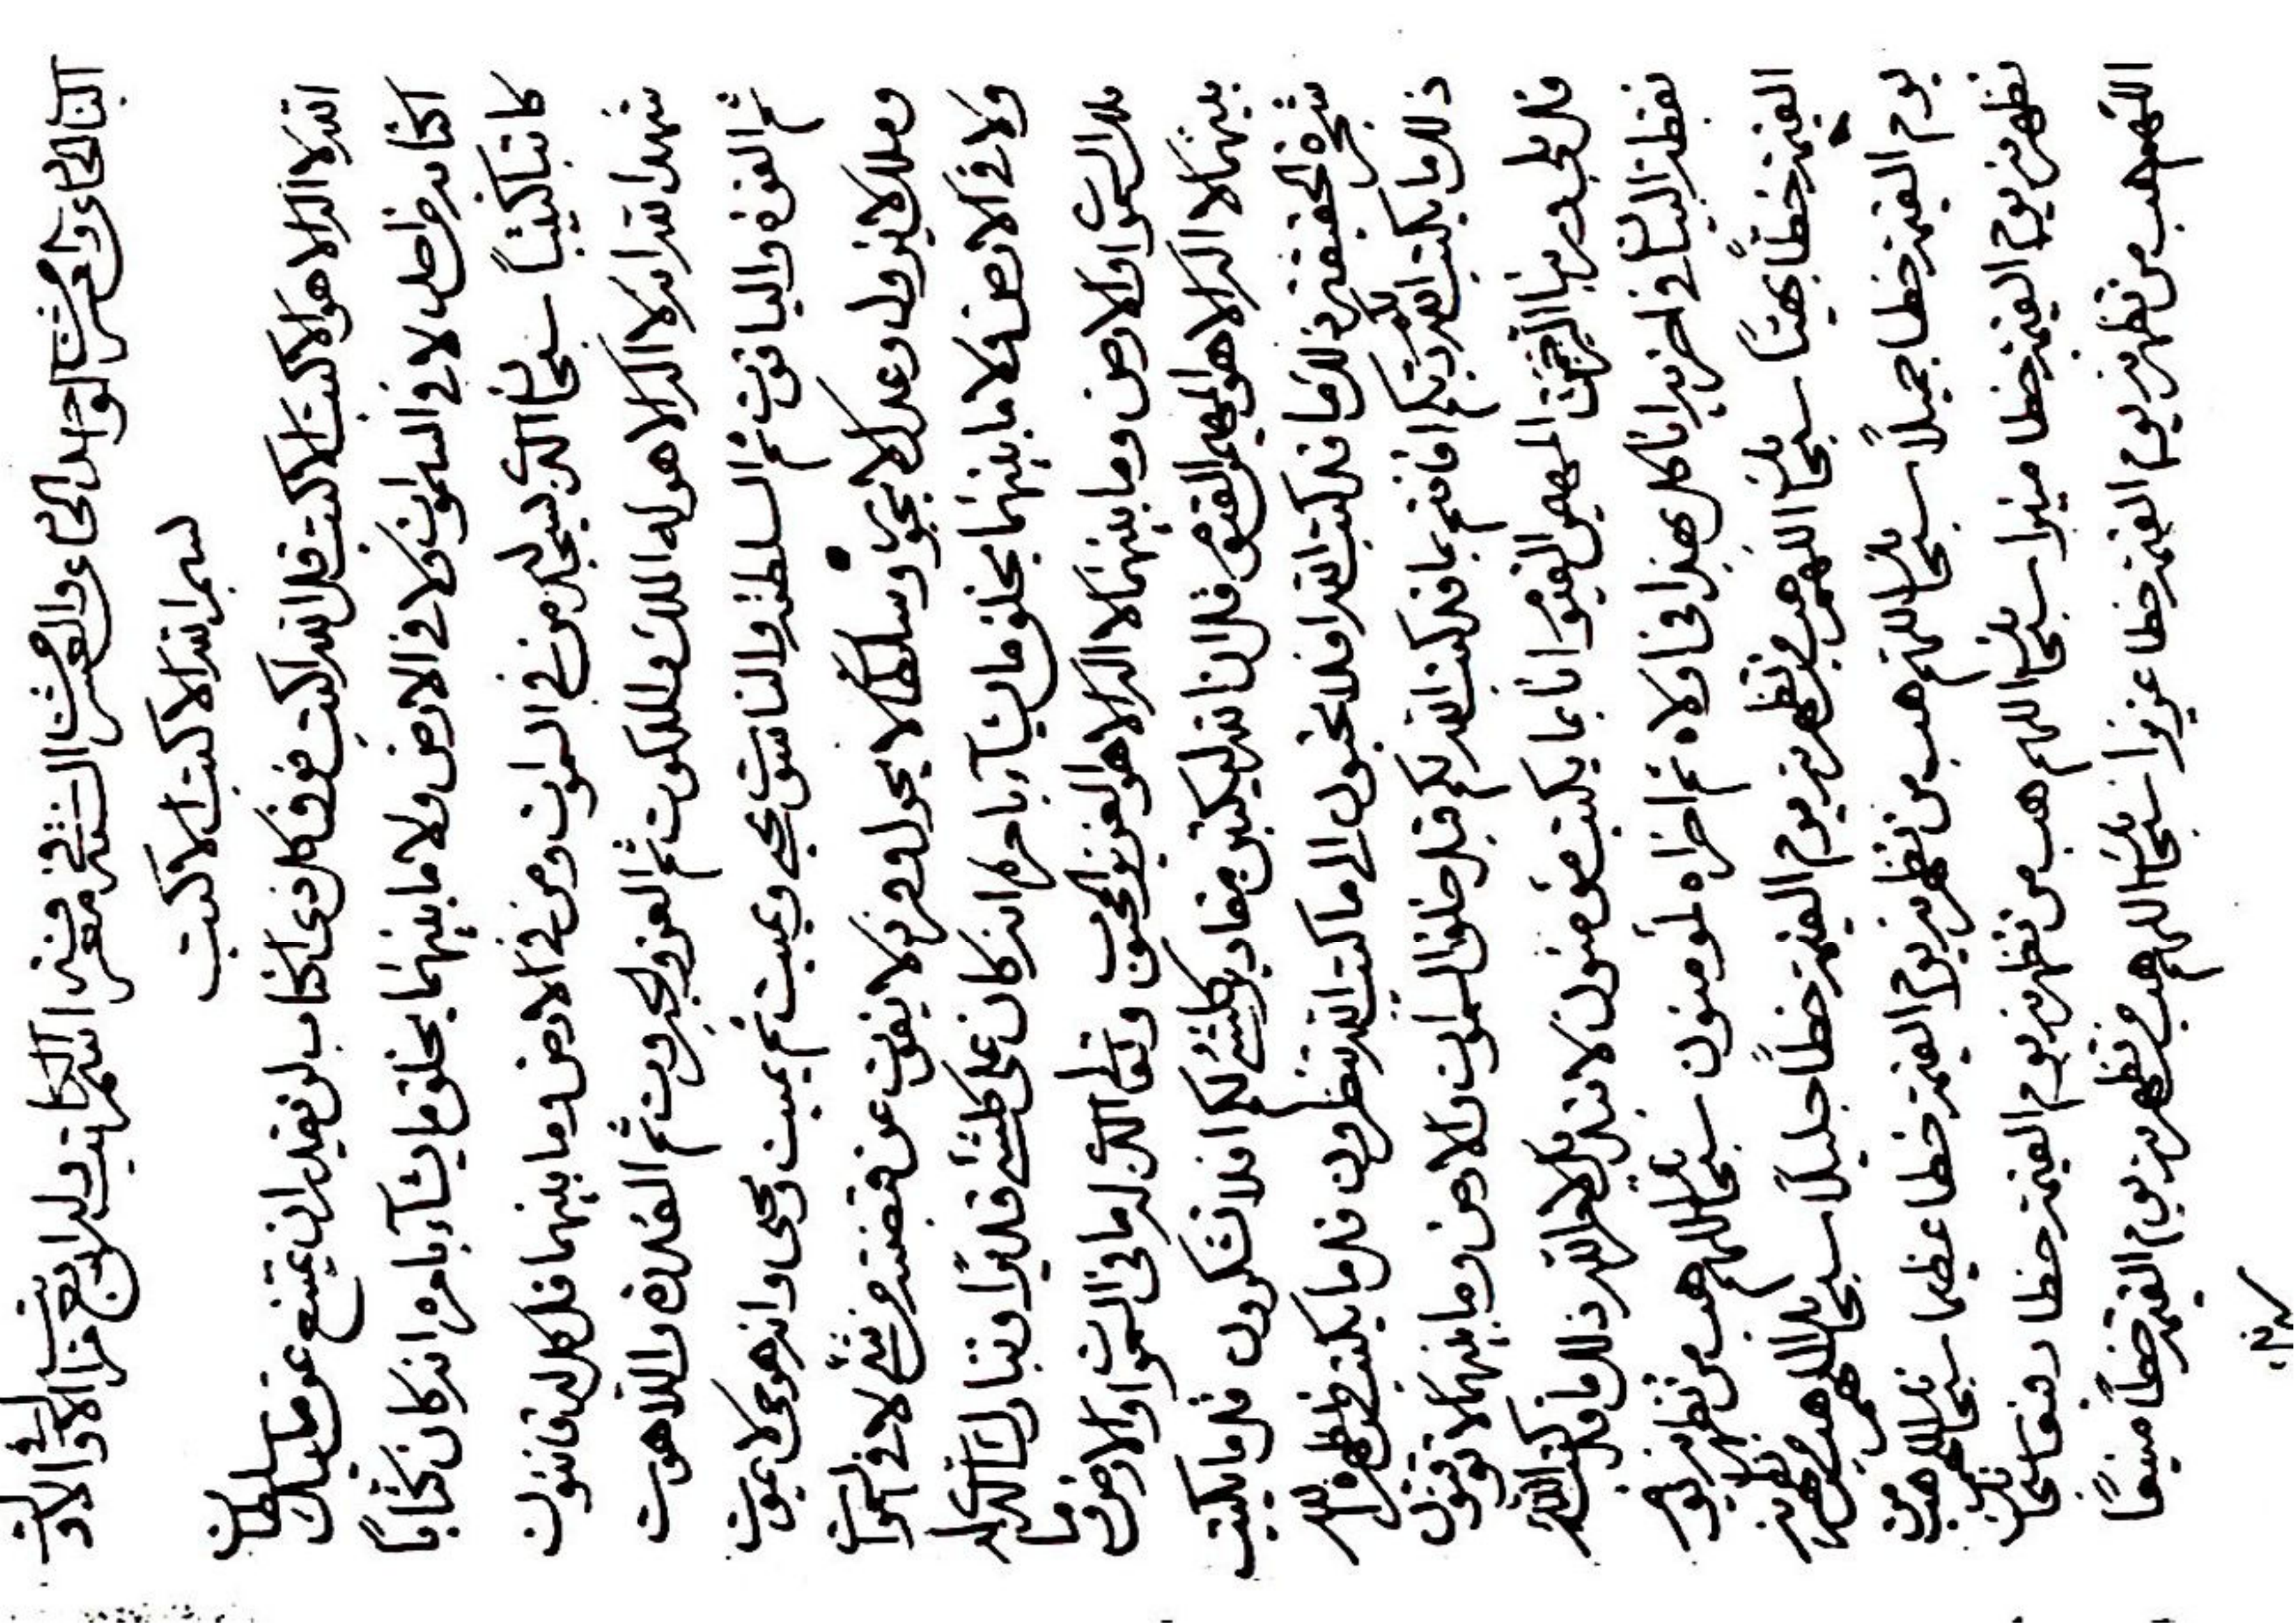 الباب الحاء والعشر الواحد الحاء والعشر في معرفة اسم الكاتب وله اربع مراتب الاول في الاول
بسم الله الاكتب الاكتب
الله لا اله الا هو الاكتب الاكتب قل الله اكتب فوق كل ذي اكتاب لن يقدر ان يمتنع عن مليك سلطان
اكتابه من احد لا في السموات ولا في الارض ولا ما بينهما يخلق ما يشآء بامره انه كان كتابا
كاتبا كتيبا سبحان الذي يسجد له من في السموات ومن في الارض وما بينهما قل كل له قانتون
شهد الله انه لا اله الا هو له الملك والملكوت ثم العز والجبروت ثم القدرة واللاهوت
ثم القوة والياقوت ثم السلطنة والناسوت يحيي ويميت ثم يميت ويحيي وانه هو حي لا يموت
وملك لا يزول وعدل لا يجور وسلطان لا يحول وفرد لا يفوت عن قبضته من شيء لا في السموات
ولا في الارض ولا ما بينهما يخلق ما يشآء بامره انه كان على كل شيء قديرا وتبارك الذي له
ملك السموات والارض وما بينهما لا اله الا هو العزيز المحبوب وتعالى الذي له ما في السموات والارض وما
بينهما لا اله الا هو المهيمن القيوم قل ان الله ليكتبن مقادير كل شيء لكم افلا تشكرون قل ما يكتب
شجرة الحقيقة ذلك ما قد كتب الله افلا تحبون الى ما كتب الله تنظرون قل ما يكتب من يظهره الله
ذلك ما يكتب الله لكم ربكم افانتم بما قد كتب الله لكم قبل خلق السموات والارض وما بينهما لا توقنون
قل بلى ربنا الرحمن المهيمن القيوم انا بما يكتب موقنون لا تبديل الله ذلك ما قد كتب الله
نقطة البيان في اخريه انا كل بهذا في اولاه ثم اخراه لمؤمنون سبحانك اللهم هب من تظهرنه يوم
القيمة خطا بهيا سبحانك اللهم هب من تظهرنه يوم القيمة خطا جليلا سبحانك اللهم هب من تظهرنه
يوم القيمة خطا جميلا سبحانك اللهم هب من تظهرنه يوم القيمة خطا عظيما سبحانك اللهم هب من
تظهرنه يوم القيمة خطا منيرا سبحانك اللهم هب من تظهرنه يوم القيمة خطا رفيعا سبحانك
اللهم هب من تظهرنه يوم القيمة خطا عزيزا سبحانك اللهم هب من تظهرنه يوم القيمة خطا منيعا